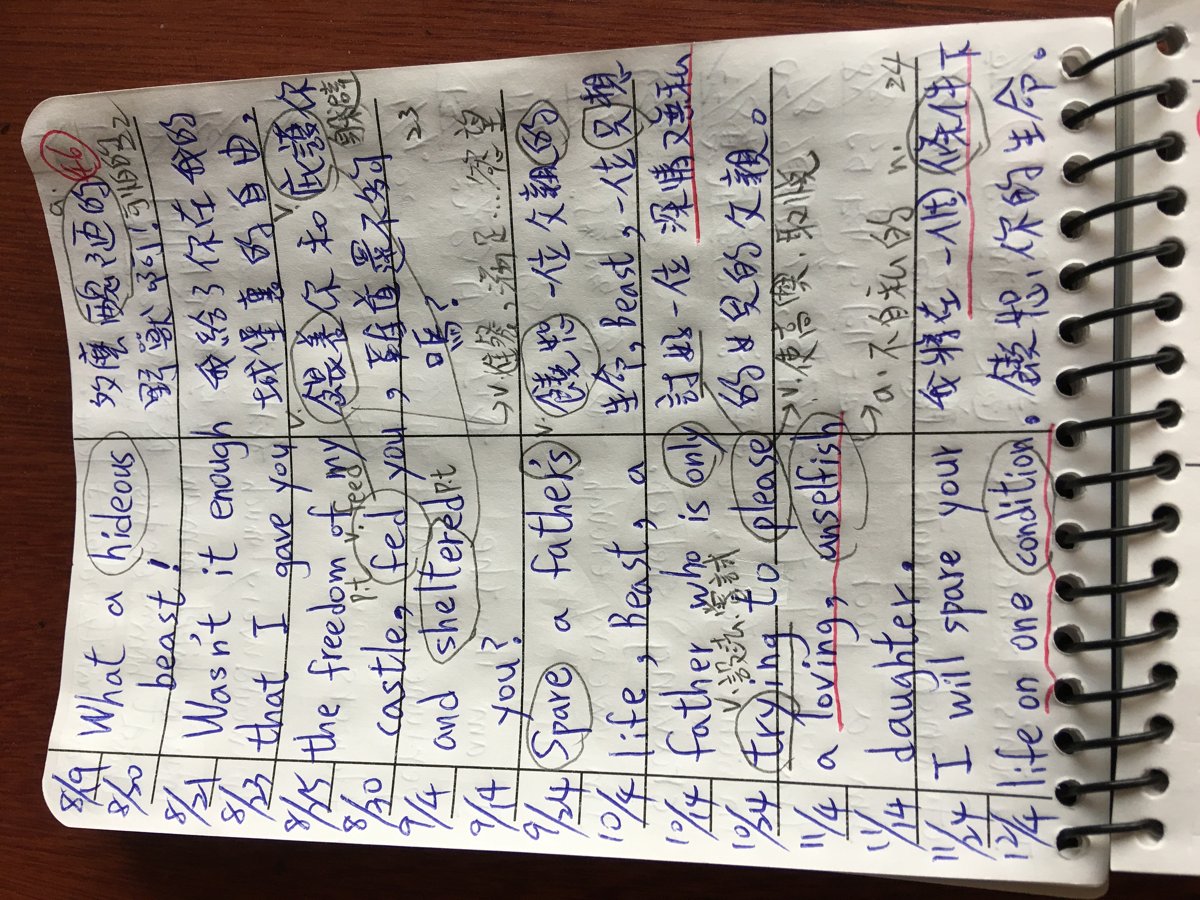 46
8/19
8/20
8/21
8/23
8/25
8/30
9/4
9/14
9/24
10/4
10/14
10/24
11/4
11/14
11/24
12/4
What a hideous
beast!
a.
醜陋的
野獸
22
Wasn't it enough
that I gave you
the freedom of my
castle, fed you,
p.t v. feed
and sheltered
p.t
you?
我給了你在我的
城堡裏的自由,
v.
餵養你和庇護你
v.
,難道還不夠
嗎?
23
Spare a father's
life, Beast, a
father who is only
v. 試試, 嘗試
trying to please
a loving, unselfish
daughter.
v.
饒恕一位父親的
生命, Beast, 一位只想
討好一位深情又無私
的女兒的父親。
v. 使高興. 取悅
a. 不自私的
24
I will spare your
life on one condition.
n.
我將在一個條件下
饒恕你的生命。